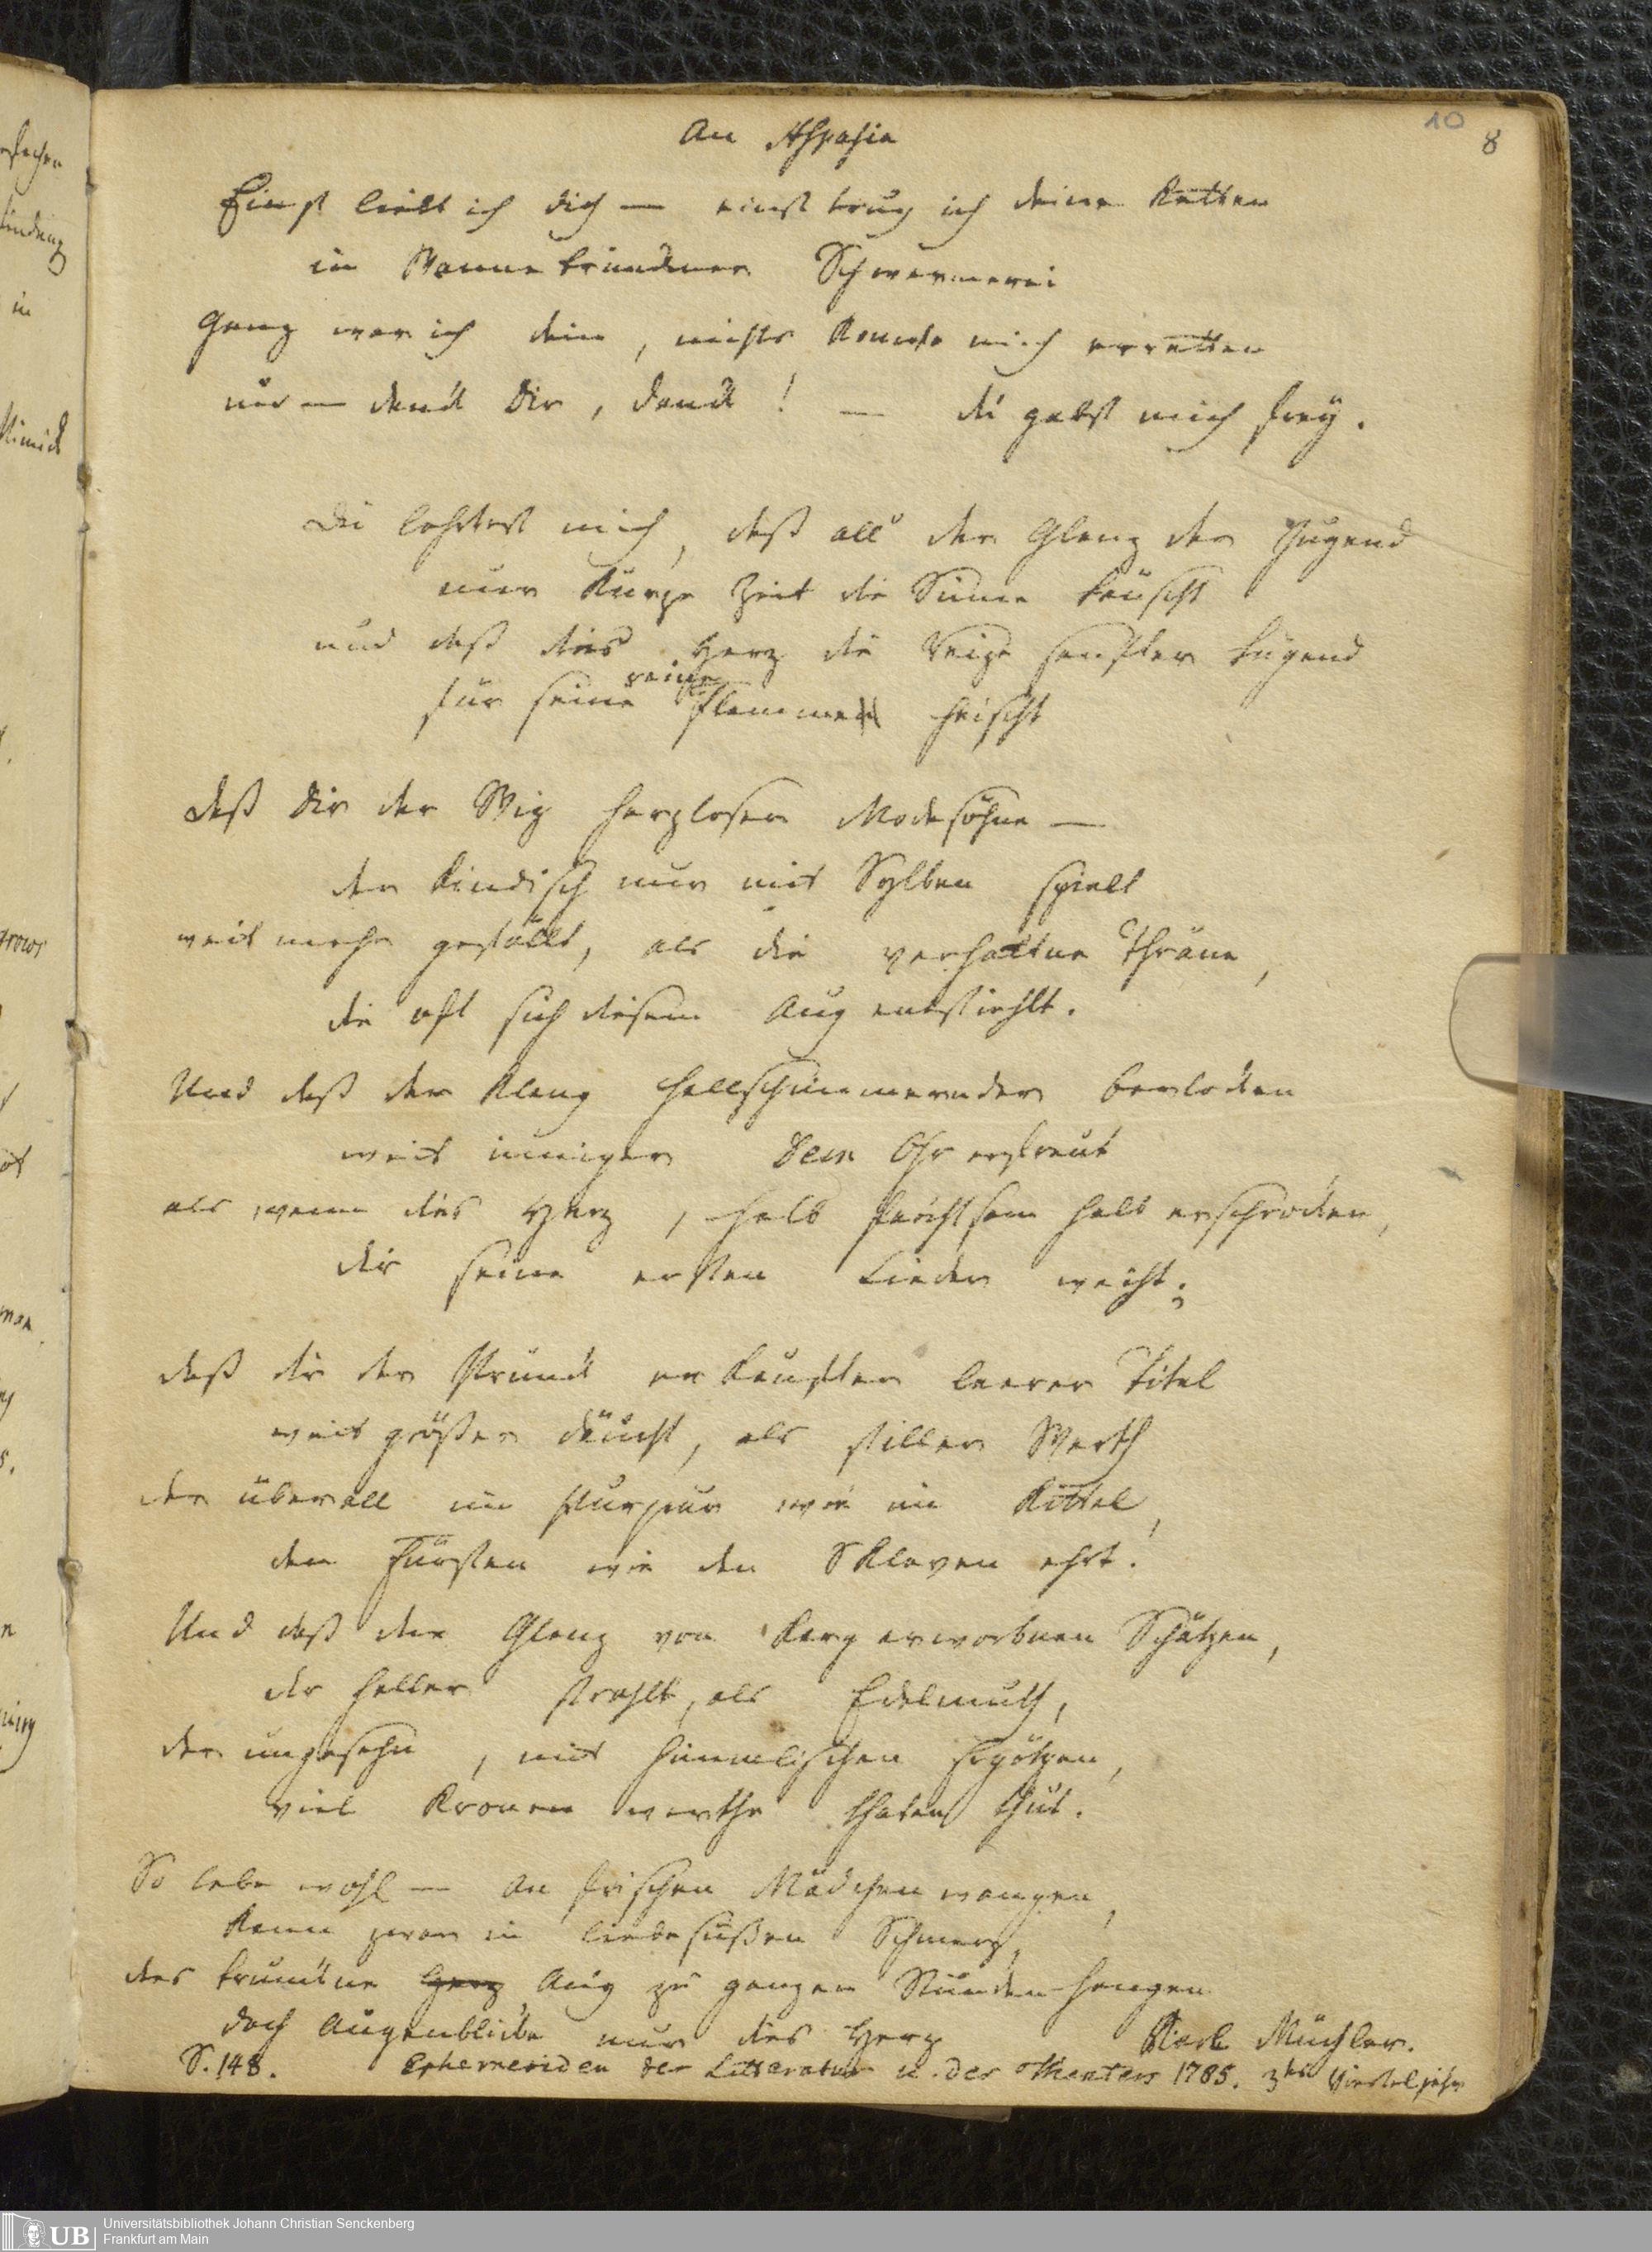 10
8
An Aspasia
Einst liebt ich dich — einst trug ich deine Ketten
in Wonnetrunckner Schwärmerei
Ganz war ich dein, nichts konnte mich erretten
nur — danck dir, danck! — du gabst mich frey.
Du lehrtest mich, daß all' der Glanz der Jugend
nur kurze Zeit die Sinne täuscht
und daß dies Herz die Reize sanfter Tugend
reine
für seine Flammen heischt
daß dir der Witz herzloser Modesöhne —
der kindisch nur mit Sylben spielt
weit mehr gefällt, als die verhaltne Thräne,
die oft sich diesem Aug entstiehlt.
Und daß der Klang hellschimmernder berlocken
weit inniger dein Ohr erfreut
als wenn dies Herz, halb furchtsam halb erschrocken,
dir seine ersten Lieder weiht;
daß dir der Prunck erkaufter leerer Titel
weit größer däucht, als stiller Werth
der überall im Purpur wie im Kittel,
den Fürsten wie den Sklaven ehrt.
Und daß der Glanz von karg erworbnen Schätzen,
dir heller strahlt, als Edelmuth,
der ungesehn, mit himmlischen Ergötzen,
viel Kronen werthe Thaten thut.
So lebe wohl — an frischen Mädchenwangen,
kann zwar in liebesüßen Schmerz,
das trunckne Herz Aug zu ganzen Stunden hangen
doch Augenblicke nur dies Herz
Karl Müchler.
S. 148. Ephemeriden der Litteratur u. des Theaters 1785. 3tes Vierteljahr
Universitätsbibliothek Johann Christian Senckenberg
Frankfurt am Main
UB